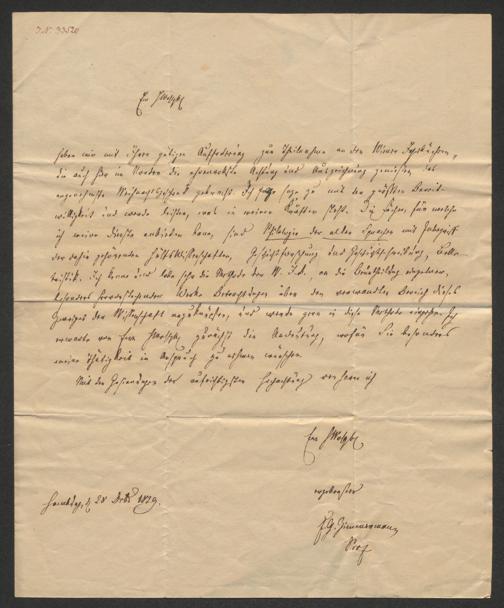 I.N. 33520
Ew Wohlgb
haben mir mit Ihrer gütigen Aufforderung zur Theilnahme an den Wiener Jahrbüchern,
die auch hier im Norden die ehrenvollste Achtung und Auszeichnung genießen, das
angenehmste Weihnachtsgeschenk gebracht. Ich sage zu mit der größten Bereit-
willigkeit und werde leisten, was in meinen Kräften steht. Die Fächer, für welche
ich meine Dienste anbieten kann, sind Philologie der alten Sprachen mit Inbegriff
der dahin gehörenden Hülfswissenschaften, Geschichtforschung und Geschichtschreibung, Belle-
tristik. Ich kenne und lobe sehr die der W. J., an die Beurtheilung einzelner,
besonders hervorstechender Werke Betrachtungen über den verwandten Bereich dieses
Zweiges der Wissenschaft anzuknüpfen, und werde gern in diese eingehen. Ich
erwarte von Ew Wohlgb zunächst die Andeutung, wofür Sie besonders
meine Thätigkeit in Anspruch zu nehmen wünschen.
Mit den Gesinnungen der aufrichtigsten Hochachtung verharre ich
Ew Wohlgb
ergebenster
F. G. Zimmermann
Prof
Hamburg, d. 28 Decbr 1829.